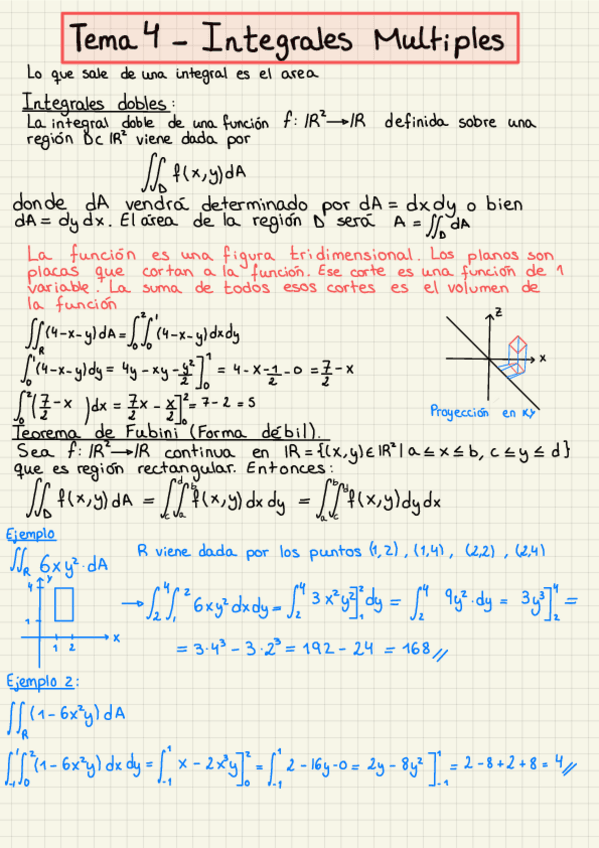 Tema 4 - Integrales Multiples
Lo que sale de una integral es el area
Integrales dobles:
La integral doble de una función f: IR² → IR definida sobre una
región D ⊂ IR² viene dada por
∬_D f(x,y) dA
donde dA vendrá determinado por dA = dx dy o bien
dA = dy dx. El área de la región D será A = ∬_D dA
La función es una figura tridimensional. Los planos son
placas que cortan a la función. Ese corte es una función de 1
variable. La suma de todos esos cortes es el volumen de
la función
∬_R (4-x-y) dA = ∫_0^2 ∫_0^1 (4-x-y) dx dy
∫_0^1 (4-x-y) dy = 4y - xy - y²/2 ]_0^1 = 4 - x - 1/2 - 0 = 7/2 - x
∫_0^2 (7/2 - x) dx = 7/2 x - x/2 ]_0^2 = 7 - 2 = 5
z
x
Proyección en xy
Teorema de Fubini (Forma débil).
Sea f: IR² → IR continua en IR = {(x,y) ∈ IR² | a ≤ x ≤ b, c ≤ y ≤ d}
que es región rectangular. Entonces:
∬_D f(x,y) dA = ∫_c^d ∫_a^b f(x,y) dx dy = ∫_a^b ∫_c^d f(x,y) dy dx
Ejemplo
∬_R 6xy² · dA R viene dada por los puntos (1,2), (1,4), (2,2), (2,4)
y
4
1
1 2
x
→ ∫_2^4 ∫_1^2 6xy² dx dy = ∫_2^4 3x²y² ]_1^2 dy = ∫_2^4 9y² · dy = 3y³ ]_2^4 =
= 3·4³ - 3·2³ = 192 - 24 = 168 //
Ejemplo 2:
∬_R (1-6x²y) dA
∫_-1^1 ∫_0^2 (1-6x²y) dx dy = ∫_-1^1 x - 2x³y ]_0^2 = ∫_-1^1 2 - 16y - 0 = 2y - 8y² ]_-1^1 = 2 - 8 + 2 + 8 = 4 //